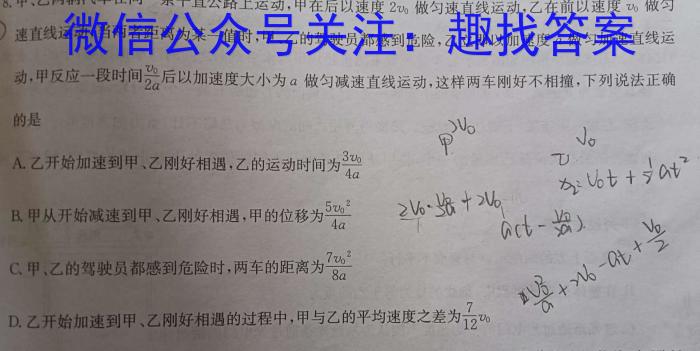 8.甲、乙两辆汽车在同一条平直公路上运动,甲在后以速度 2v₀ 做匀速直线运动,乙在前以速度 v₀ 做匀
速直线运动,当两者距离为某一值时,甲、乙的驾驶员都感到危险,
微信公众号关注：趣找答案
动,甲反应一段时间v₀/2a后以加速度大小为 a 做匀减速直线运动,这样两车刚好不相撞,下列说法正确
的是
A. 乙开始加速到甲、乙刚好相遇,乙的运动时间为3v₀/4a
B. 甲从开始减速到甲、乙刚好相遇,甲的位移为5v₀²/4a
C. 甲、乙的驾驶员都感到危险时,两车的距离为7v₀²/8a
D. 乙开始加速到甲、乙刚好相遇的过程中,甲与乙的平均速度之差为7/12v₀
甲 2v₀
乙 v₀
x₂=v₀t+½at²
2v₀·v₀/2a+2v₀
a(t-v₀/2a)